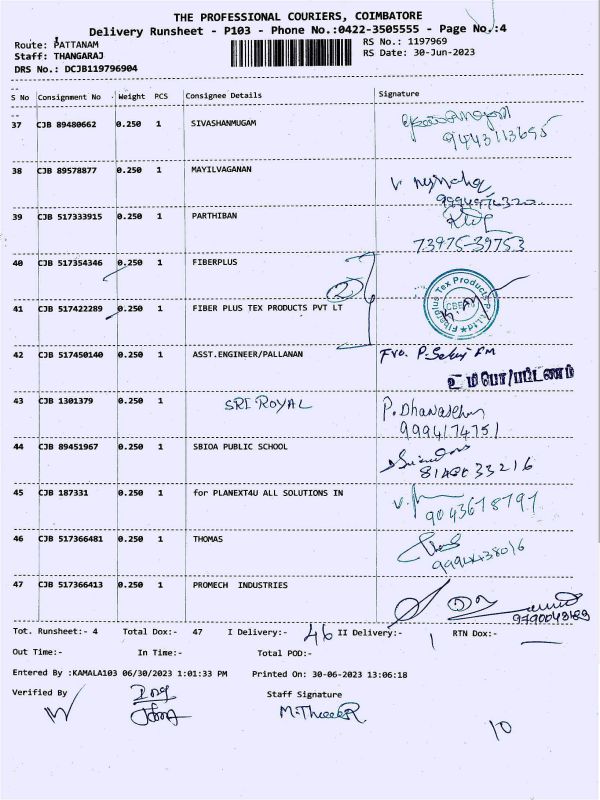 THE PROFESSIONAL COURIERS, COIMBATORE
Delivery Runsheet - P103 - Phone No.:0422-3505555 - Page No.:4
Route: PATTANAM
RS No.: 1197969
Staff: THANGARAJ
RS Date: 30-Jun-2023
DRS No.: DCJB119796904
S No Consignment No Weight PCS Consignee Details Signature
37 CJB 89480662 0.250 1 SIVASHANMUGAM
9443113695
38 CJB 89578877 0.250 1 MAYILVAGANAN
39 CJB 517333915 0.250 1 PARTHIBAN
73975-39753
40 CJB 517354346 0.250 1 FIBERPLUS
2
Fiberplus Tex Products P.Ltd
41 CJB 517422289 0.250 1 FIBER PLUS TEX PRODUCTS PVT LT
42 CJB 517450140 0.250 1 ASST.ENGINEER/PALLANAN
உ மி பொ/பட்டணம்
43 CJB 1301379 0.250 1 SRI ROYAL
9994174751
44 CJB 89451967 0.250 1 SBIOA PUBLIC SCHOOL
45 CJB 187331 0.250 1 for PLANEXT4U ALL SOLUTIONS IN
46 CJB 517366481 0.250 1 THOMAS
47 CJB 517366413 0.250 1 PROMECH INDUSTRIES
Tot. Runsheet:- 4 Total Dox:- 47 I Delivery:- 46 II Delivery:- 1 RTN Dox:-
Out Time:- In Time:- Total POD:-
Entered By :KAMALA103 06/30/2023 1:01:33 PM Printed On: 30-06-2023 13:06:18
Verified By Staff Signature
10